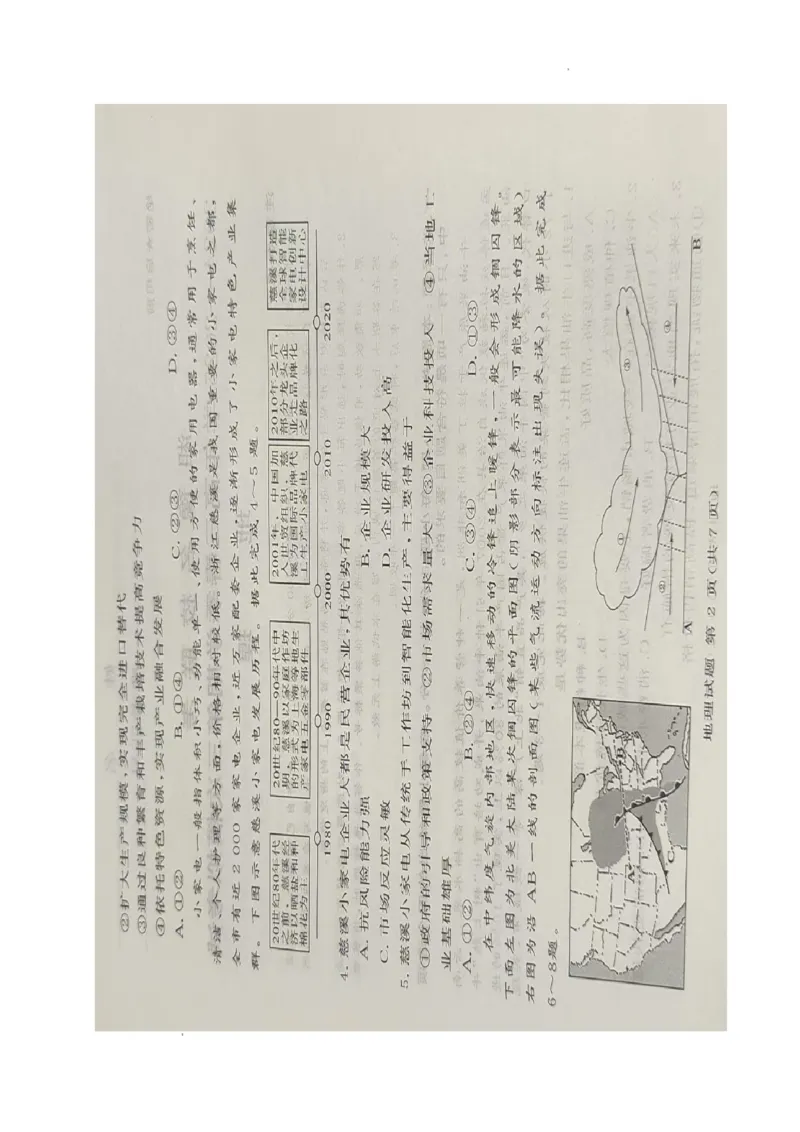 ②扩大生产规模，实现完全进口替代
③通过良种繁育和丰产栽培技术提高竞争力
④依托特色资源，实现产业融合发展
A. ①② B. ①④ C. ②③ D. ③④
小家电一般指体积小巧、功能单一、使用方便的家用电器，通常用于烹饪、
清洁、个人护理等方面，价格相对较低。浙江慈溪是我国重要的小家电之都，
全市有近2 000家家电企业，近万家配套企业，逐渐形成了小家电特色产业集
群。下图示意慈溪小家电发展历程。据此完成4～5题。
20世纪80年代
之前，慈溪经
济以晒盐和种
棉花为主
20世纪80—90年代中
期，慈溪以家庭作坊
的形式为上海等地生
产家电五金零部件
2001年，中国加
入世贸组织，慈
溪为国际品牌代
工生产小家电
2010年之后，
部分龙头企
业走品牌化
之路
慈溪打造
全球智能
家电创新
设计中心
1980 1990 2000 2010 2020
4. 慈溪小家电企业大都是民营企业，其优势有
A. 抗风险能力强 B. 企业规模大
C. 市场反应灵敏 D. 企业研发投入高
5. 慈溪小家电从传统手工作坊到智能化生产，主要得益于
①政府的引导和政策支持 ②市场需求量大 ③企业科技投入大 ④当地工
业基础雄厚
A. ①② B. ②④ C. ③④ D. ①③
在中纬度气旋内部地区，快速移动的冷锋追上暖锋，一般会形成锢囚锋。
下面左图为北美大陆某次锢囚锋的平面图（阴影部分表示最可能降水的区域），
右图为沿AB一线的剖面图（某些气流运动方向标注出现失误）。据此完成
6～8题。
A
B
C
①
②
③
④
A
B
地理试题 第2页（共7页）